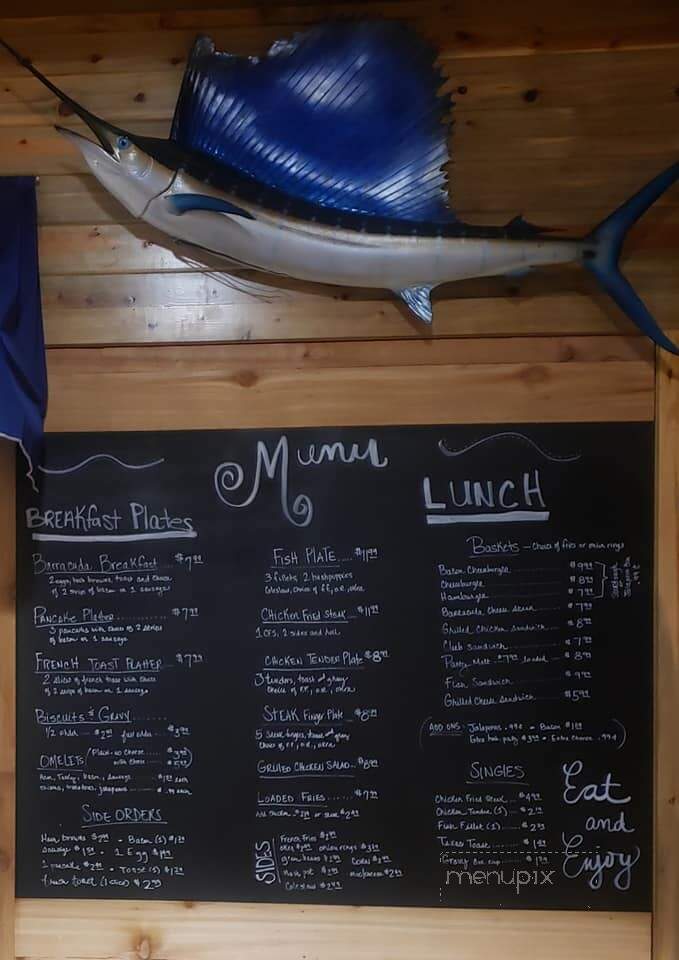 Menu
BREAKFAST Plates
Barracuda Breakfast $7.99
2 eggs, hash browns, toast and choice
of 2 strips of bacon or 1 sausage
Pancake Platter $7.99
3 pancakes with choice of 2 strips
of bacon or 1 sausage
FRENCH TOAST PLATTER $7.99
2 slices of french toast with choice
of 2 strips of bacon or 1 sausage
Biscuits & GRAVY
1/2 order full order
OMELETS Plain - no cheese
with cheese
Ham, Turkey, bacon, sausage each
onions, tomatoes, jalapenos .99 each
SIDE ORDERS
Hash browns Bacon (2)
Sausage 1 Egg
1 pancake Toast (2)
French toast
FISH PLATE $11.99
3 fillets 2 hushpuppies
Coleslaw, choice of f.f., o.r., okra
CHICKEN Fried Steak $11.99
1 CFS, 2 sides and roll
CHICKEN TENDER Plate $8.99
3 tenders, toast and gravy
choice of f.f., o.r., okra
STEAK Finger Plate $8.99
5 steak fingers, toast and gravy
choice of f.f., o.r., okra
GRILLED CHICKEN SALAD $8.99
LOADED FRIES $7.99
Add chicken or steak
SIDES
French Fries
okra onion rings
green beans corn
mash pot
Coleslaw
LUNCH
Baskets - choice of fries or onion rings
Bacon Cheeseburger $9.99
Cheeseburger $8.99
Hamburger $7.99
Barracuda Cheese Steak $7.99
Grilled Chicken Sandwich $8.99
Club Sandwich $7.99
Patty Melt $7.99 loaded $8.99
Fish Sandwich $9.99
Grilled Cheese Sandwich $5.99
ADD ONS: Jalapenos .99¢ - Bacon
Extra hob. patty - Extra Cheese .99¢
SINGLES
Chicken Fried Steak $4.99
Chicken Tender (1)
Fish Fillet (1)
Texas Toast
Gravy one cup
Eat
and
Enjoy
menupix